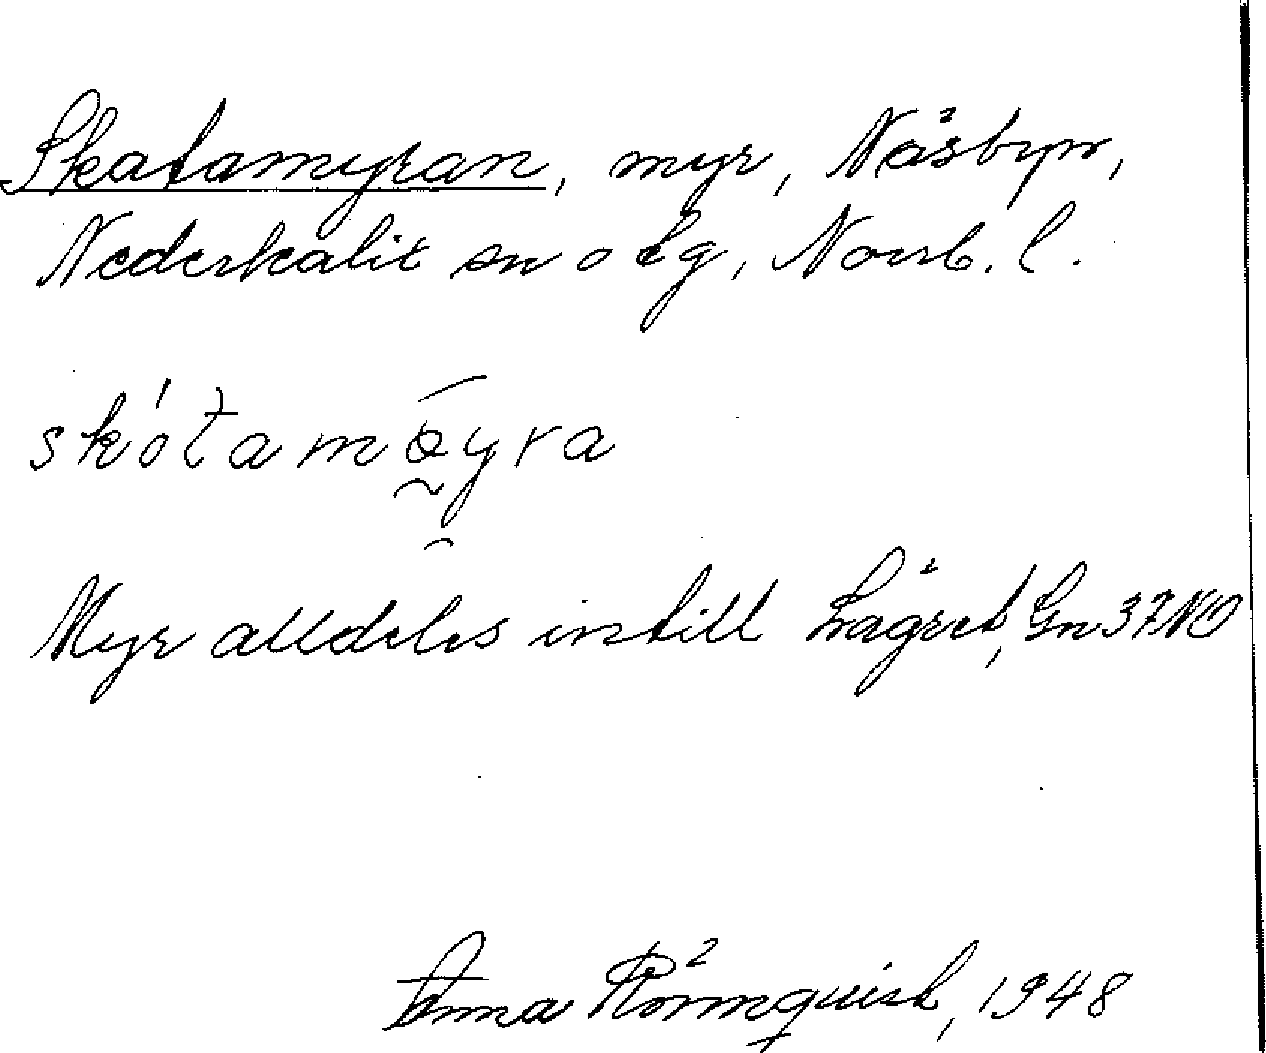 Skatamyran, myr, Näsbyn,
Nederkalix sn o tg, Norrb. l.
skótamøyra
Myr alldeles intill Lägret, Gn 37 NO
Anna Rönnquist, 1948